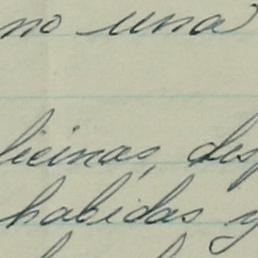 no una
licinas, des
habidas y